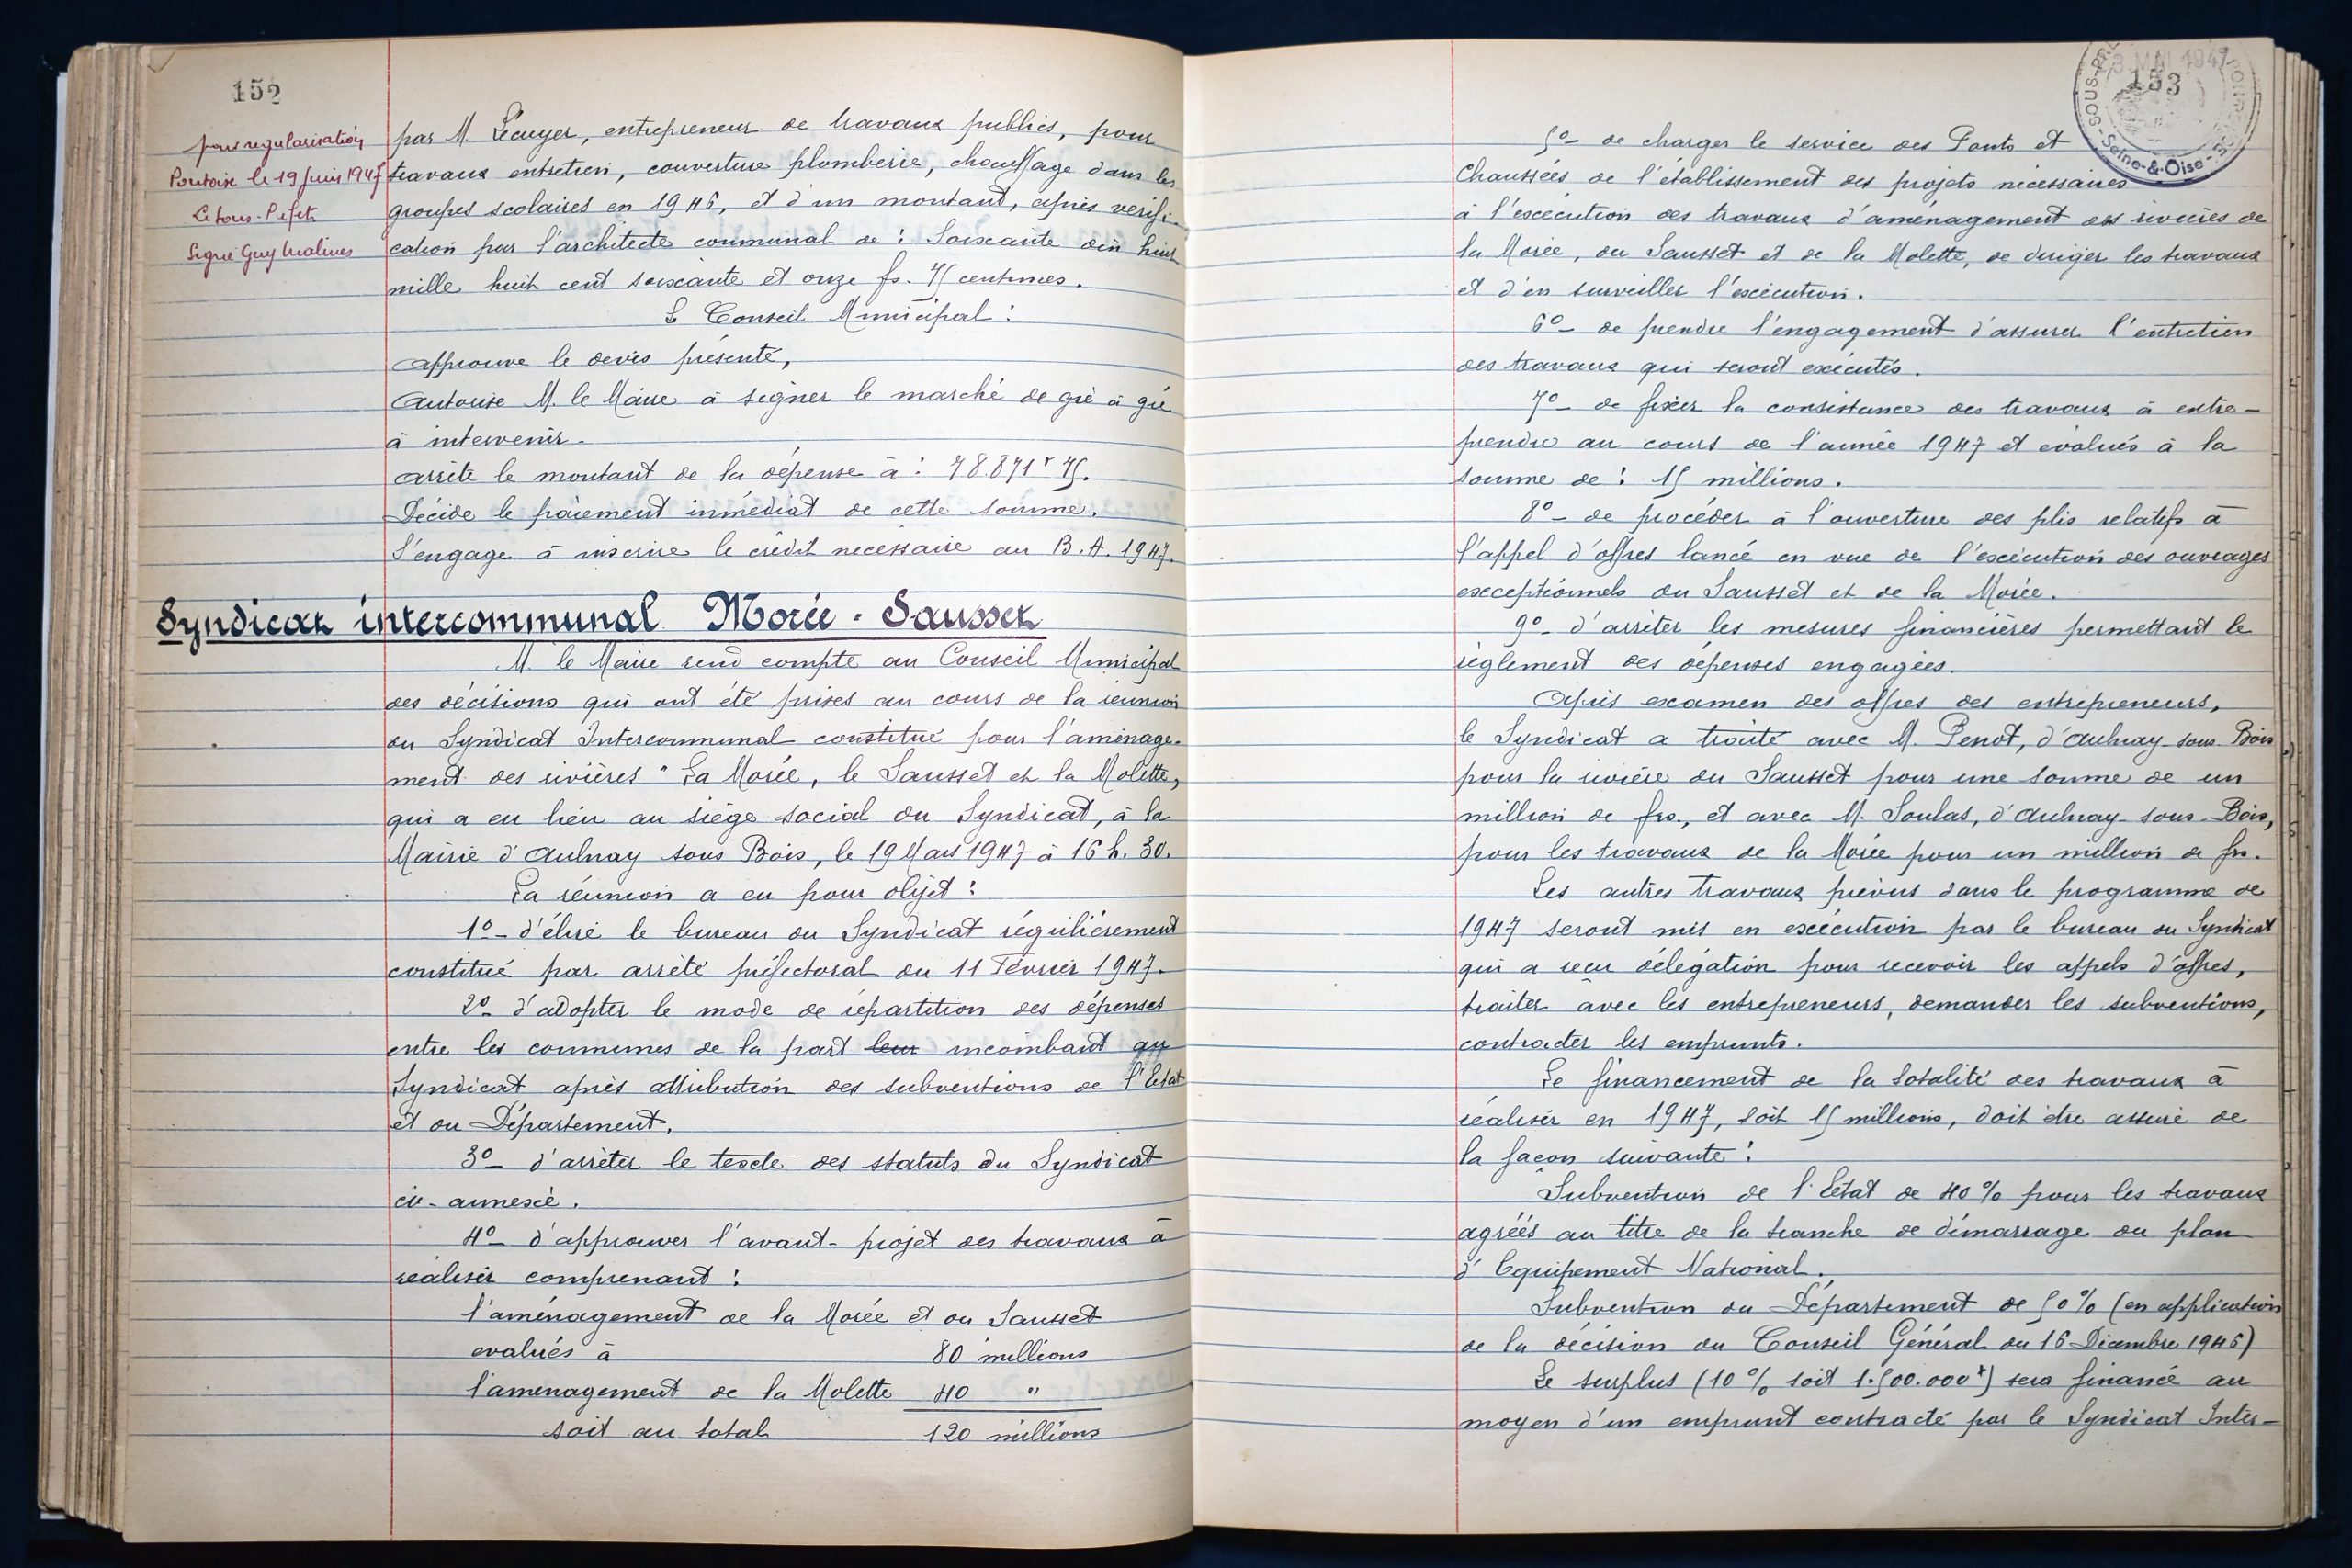 152
pour regularisation
Pontoise le 19 Juin 1947
Le Sous-Préfet
Signé Guy Malines
par M Lécuyer, entrepreneur de travaux publics, pour
travaux entretien, couverture plomberie, chauffage dans les
groupes scolaires en 1946, et d'un montant, après vérifi-
cation par l'architecte communal de : Soixante dix huit
mille huit cent soixante et onze fs. 75 centimes.
Le Conseil Municipal :
approuve le devis présenté,
Autorise M. le Maire à signer le marché de gré à gré
à intervenir.
arrête le montant de la dépense à : 78.871f 75.
Décide le paiement immédiat de cette somme.
S'engage à inscrire le crédit necessaire au B.A. 1947.
Syndicat intercommunal Morée - Sausset
M. le Maire rend compte au Conseil Municipal
des décisions qui ont été prises au cours de la réunion
du Syndicat Intercommunal constitué pour l'aménage-
ment des rivières " La Morée, le Sausset et la Molette,
qui a eu lieu au siège social du Syndicat, à la
Mairie d'Aulnay sous Bois, le 19 Mars 1947 à 16 h. 30.
La réunion a eu pour objet :
1º- d'élire le bureau du Syndicat régulièrement
constitué par arrêté préfectoral du 11 Février 1947.
2º- d'adopter le mode de répartition des dépenses
entre les communes de la part leur incombant au
Syndicat après attribution des subventions de l'Etat
et du Département.
3º- d'arrêter le texte des statuts du Syndicat
ci-annexé.
4º- d'approuver l'avant-projet des travaux à
réaliser comprenant :
l'aménagement de la Morée et du Sausset
evalués à 80 millions
l'amenagement de la Molette 40 "
soit au total 120 millions
153
3 MAI 1947
SOUS-PRÉ
Seine-&-Oise
5º- de charger le service des Ponts et
Chaussées de l'établissement des projets nécessaires
à l'exécution des travaux d'aménagement des rivières de
la Morée, du Sausset et de la Molette, de diriger les travaux
et d'en surveiller l'exécution.
6º- de prendre l'engagement d'assurer l'entretien
des travaux qui seront exécutés.
7º- de fixer la consistance des travaux à entre-
prendre au cours de l'année 1947 et évalués à la
somme de : 15 millions.
8º- de procéder à l'ouverture des plis relatifs à
l'appel d'offres lancé en vue de l'exécution des ouvrages
exceptionnels du Sausset et de la Morée.
9º- d'arrêter les mesures financières permettant le
règlement des dépenses engagées.
Après examen des offres des entrepreneurs,
le Syndicat a traité avec M. Penot, d'Aulnay-sous-Bois
pour la rivière du Sausset pour une somme de un
million de frs., et avec M. Soulas, d'Aulnay-sous-Bois,
pour les travaux de la Morée pour un million de frs.
Les autres travaux prévus dans le programme de
1947 seront mis en exécution par le bureau du Syndicat
qui a reçu délégation pour recevoir les appels d'offres,
traiter avec les entrepreneurs, demander les subventions,
contracter les emprunts.
Le financement de la totalité des travaux à
réaliser en 1947, soit 15 millions, doit être assuré de
la façon suivante :
Subvention de l'Etat de 40 % pour les travaux
agréés au titre de la tranche de démarrage du plan
d'Equipement National.
Subvention du Département de 50 % (en application
de la décision du Conseil Général du 16 Décembre 1946)
Le surplus (10 % soit 1.500.000f) sera financé au
moyen d'un emprunt contracté par le Syndicat Inter-